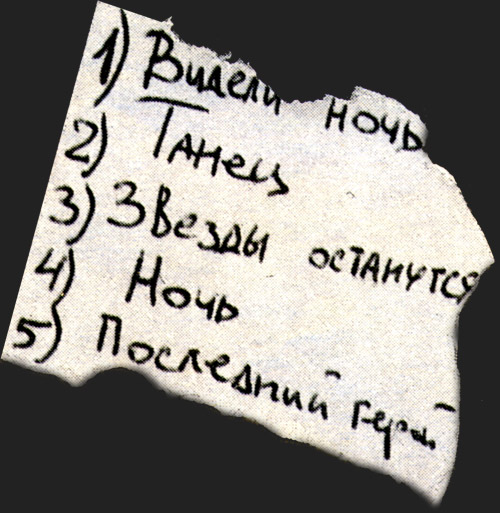 1) Видели ночь
2) Танец
3) Звезды останутся
4) Ночь
5) Последний герой